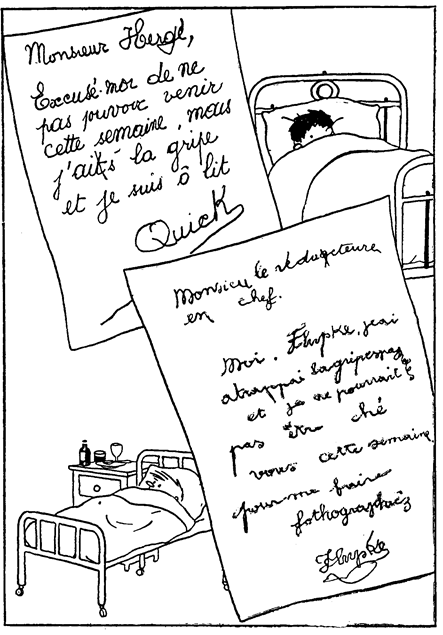 Monsieur Hergé,
Excusé-moi de ne
pas pouvoir venir
cette semaine, mais
j'aits la gripe
et je suis ô lit
Quick
Monsieu le rédacteure
en chef.
Moi, Flupke, j'ai
atrappai la gripe
et je ne pourrait
pas être ché
vous cette semaine
pour me faire
fothographiéz
Flupke